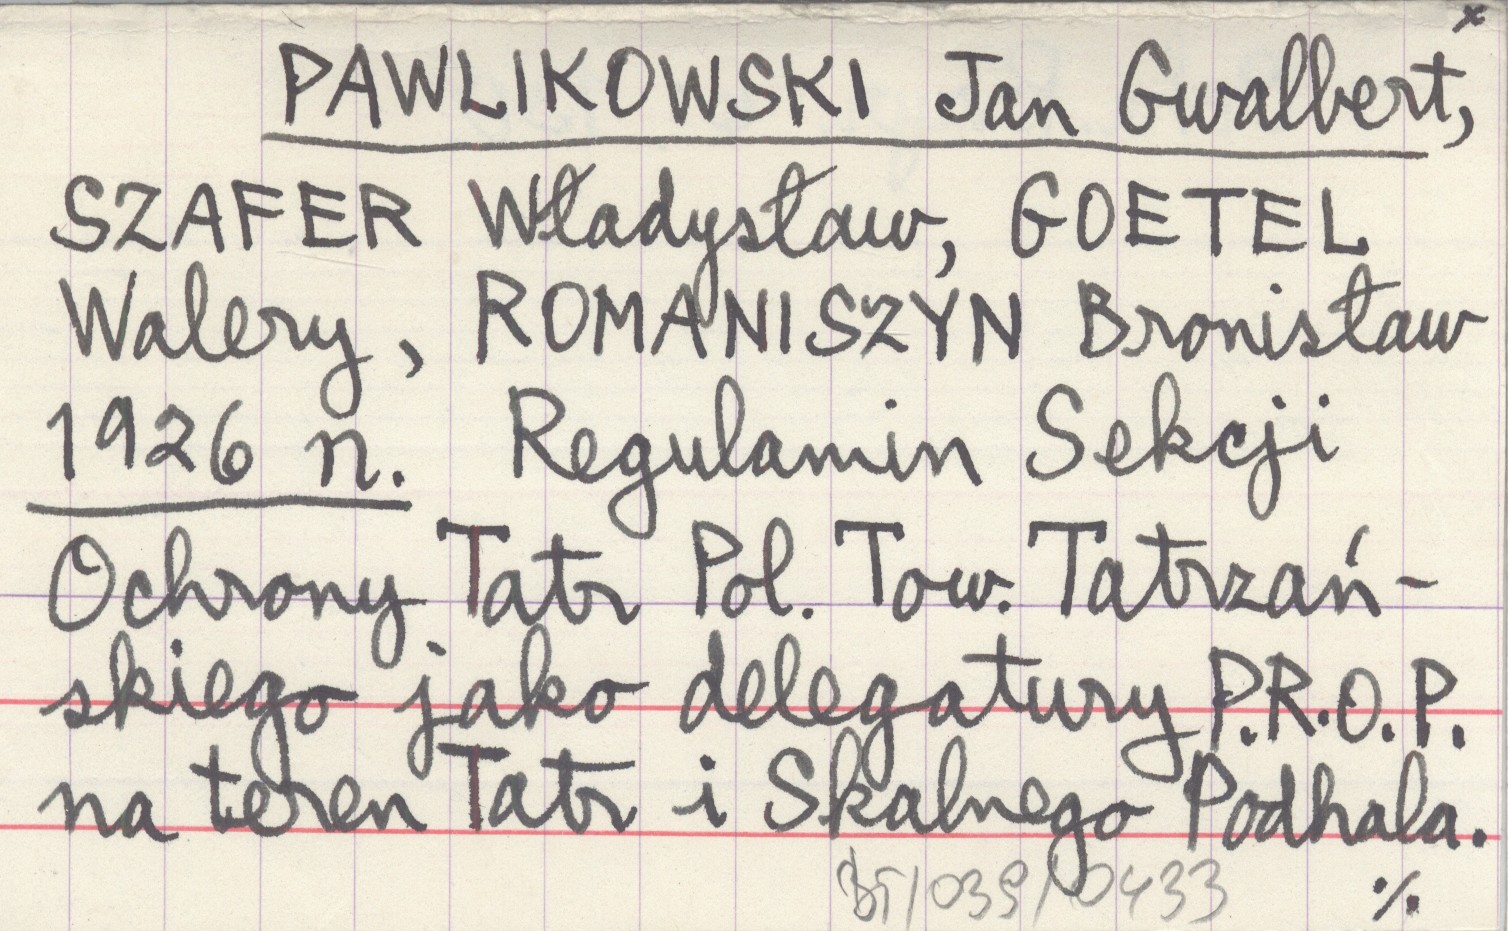 x
PAWLIKOWSKI Jan Gwalbert,
SZAFER Władysław, GOETEL
Walery, ROMANISZYN Bronisław
1926 r. Regulamin Sekcji
Ochrony Tatr Pol. Tow. Tatrzań-
skiego jako delegatury P.R.O.P.
na teren Tatr i Skalnego Podhala.
BT/039/0433 ·/.